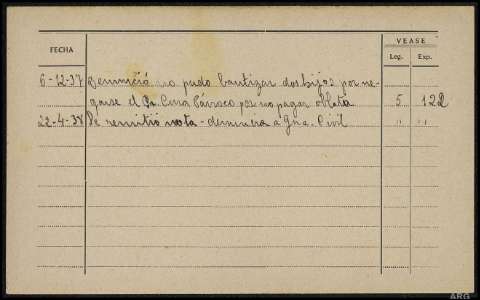 VEASE
FECHA Leg. Exp.
6-12-37 Denunció no pudo bautizar dos hijos por ne-
garse el Sr. Cura Párroco por no pagar oblata 5 122
22-4-38 Se remitió nota-denuncia a Gna. Civil " "
ARG